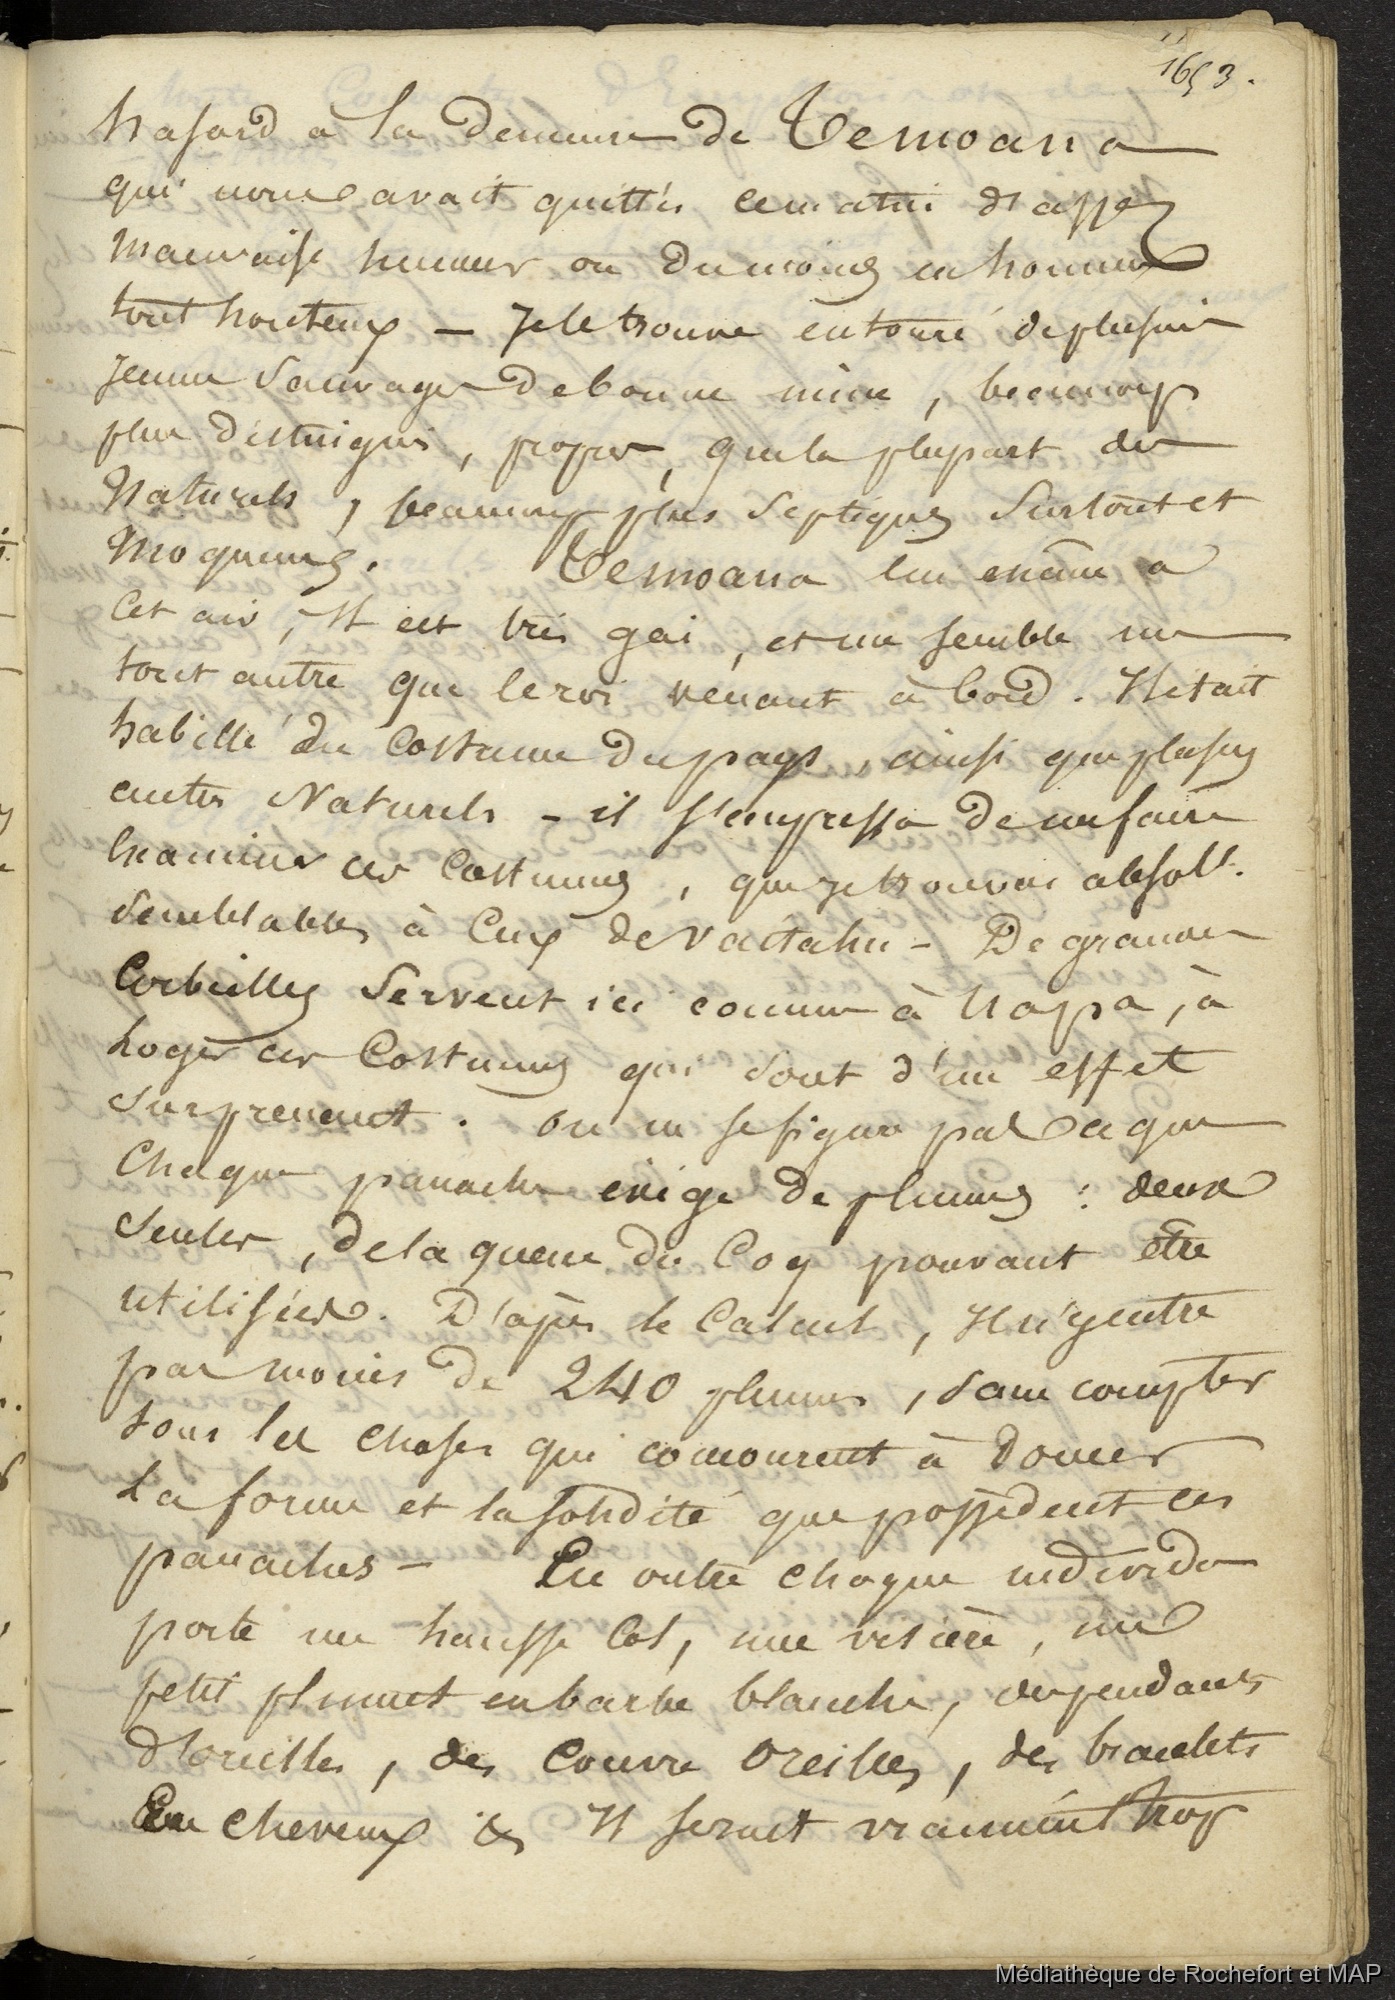 1653.
hasard à la demeure de Temoana
qui nous avait quittés ce matin d'assez
mauvaise humeur ou du moins en homme
tout honteux — Je le trouve entouré de plusieurs
jeunes sauvages de bonne mine, beaucoup
plus distingués, propres, que la plupart des
Naturels, beaucoup plus septiques surtout et
Moqueurs. Temoana lui même a
cet air, Il est très gai, et me semble un
tout autre que le roi venant à bord. Il était
habillé du Costume du pays, ainsi que plusieurs
autres Naturels - il s'empressa de me faire
Examiner ces Costumes, que je trouvai absolt.
semblables à Ceux de Vaitahu - De grandes
Corbeilles servent ici comme à hapa, à
Loger ces Costumes qui sont d'un effet
surprenant. on ne se figure pas ce que
Chaque panache exige de plumes : deux
seules, de la queue du Coq pouvant être
utilisées. D'après le Calcul, Il n'y entre
pas moins de 240 plumes, sans compter
tous les choses qui concourent à donner
La forme et la solidité que possèdent ces
panaches - En outre chaque individu
porte un hausse Col, une visière, un
petit plumet en barbe blanche, des pendants
d'oreilles, des Couvre Oreilles, des bracelets
En cheveux & Il serait vraiment trop
Médiathèque de Rochefort et MAP